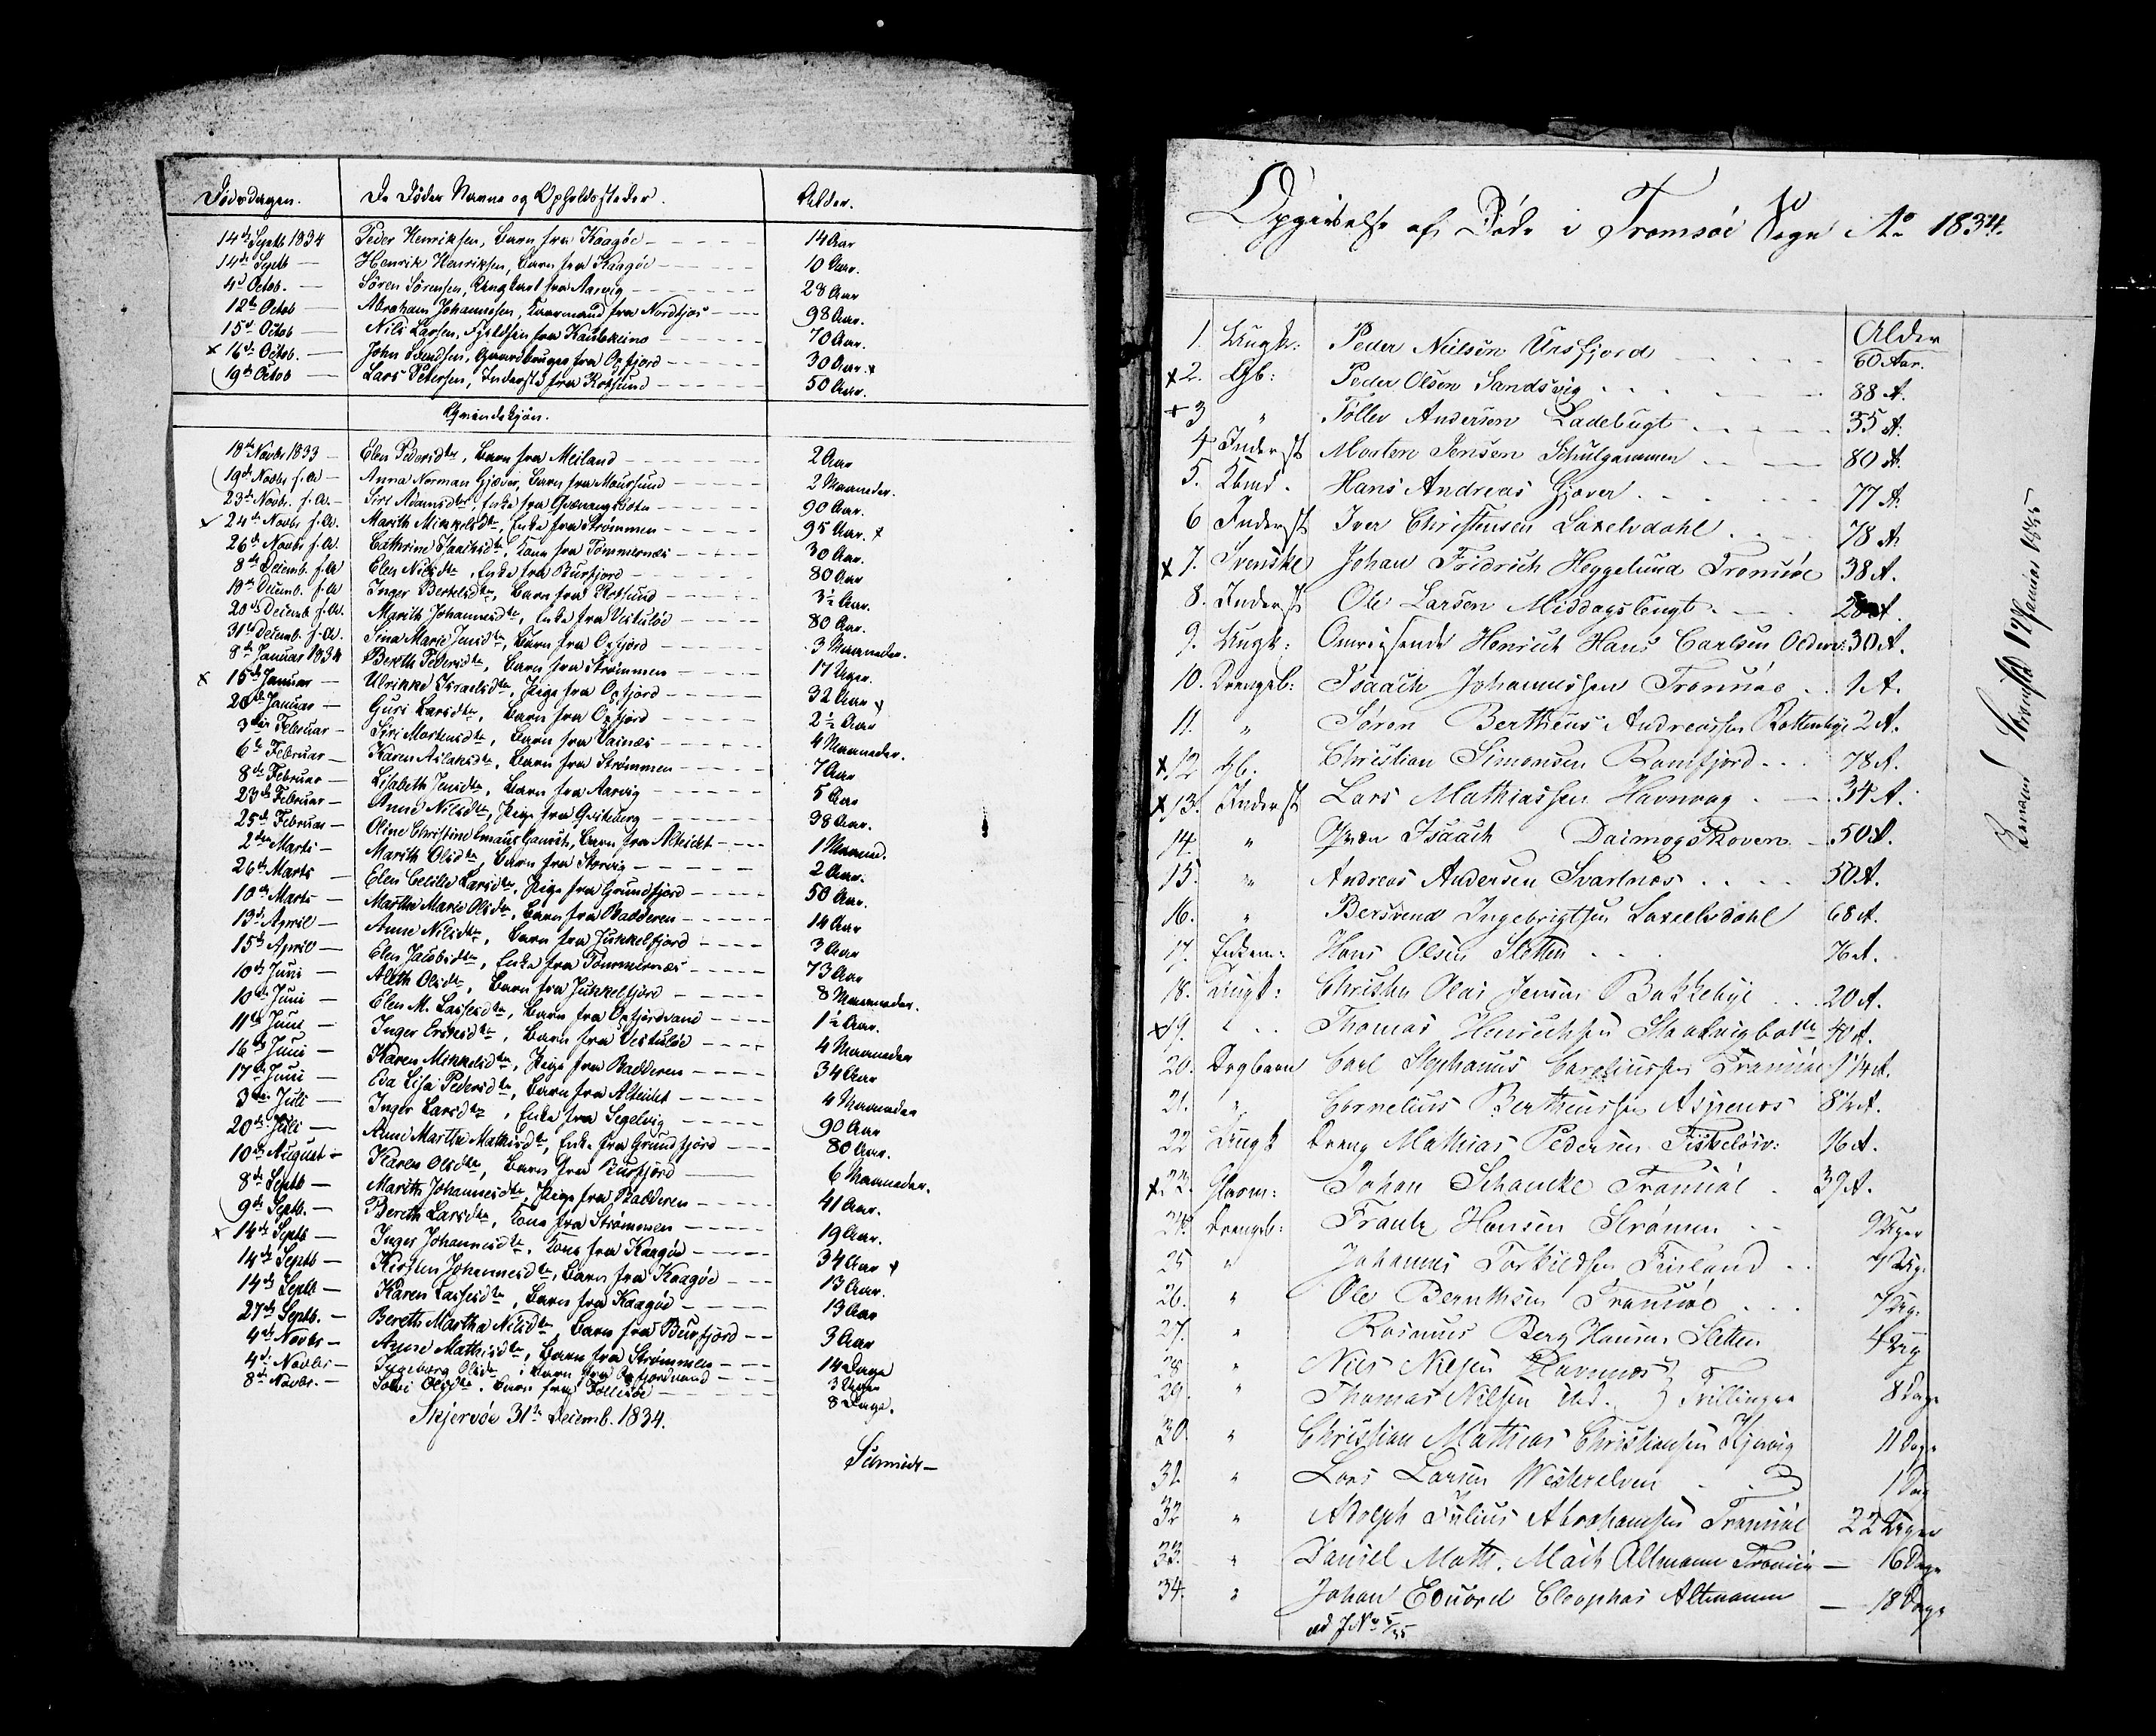 Dødsdagen. De Dødes Navne og Opholdssteder. Alder.
14de Septb 1834 Peder Henriksen, Barn fra Kaagöe 14 Aar
14de Septb Henrik Henriksen, Barn fra Kaagöe 10 Aar.
4de Octob. Sören Sörensen, Ungkarl fra Aarvig 28 Aar
12te Octob Abraham Johannesen, Kaarmand fra Nordkjos 98 Aar.
15de Octob Nils Larsen, fra Kautokeino 70 Aar.
x 16de Octob. John Svendsen, Gaardbruger fra Oxfjord 30 Aar. x
19de Octob Lars Petersen, Inderst fra Rotsund 50 Aar.
Qvindekjön.
18de Novbr 1833 Elen Pedersdtr, Barn fra Meiland 2 Aar
19de Novbr f. A. Anna Norman Gjæver, Barn fra Maursund 2 Maaneder.
23de Novbr. f. A. Siri Adamsdtr, Enke fra Qvænangsbotn 90 Aar.
24de Novbr f. A. Marith Mikkelsdtr, Enke fra Strömmen 95 Aar. x
26de Novbr f. A. Cathrine Isachsdtr, Kone fra Tömmernæs 30 Aar.
8de Decemb. f. A Elen Nilsdtr, Enke fra Burfjord 80 Aar
18de Decemb. f. A Inger Bertelsdtr, Barn fra Rotsund 3½ Aar.
20de Decemb f. A. Marith Johannesdtr, Enke fra Vestulöe 80 Aar.
31te Decemb. f. A. Sina Marie Jensdtr, Barn fra Oxfjord 3 Maaneder.
8de Januar 1834 Bereth Pedersdtr, Barn fra Strömmen 17 Uger.
x 15de Januar Ulrikke Israelsdtr, Pige fra Oxfjord 32 Aar x
20de Januar Guri Larsdtr, Barn fra Oxfjord 2½ Aar
3die Februar Siri Mortensdtr, Barn fra Vainæs 4 Maaneder.
6te Februar Karen Aslaksdtr, Barn fra Strömmen 7 Aar
8de Februar Lisabeth Jensdtr, Barn fra Aarvig 5 Aar
23de Februar Anne Nilsdtr, Pige fra 38 Aar.
25de Februar Oline Christine Emaus Gamst, Barn fra Alteidet 1 Maaned.
2den Marts Marith Olsdtr, Barn fra Storvig 2 Aar.
26de Marts Elen Cecilie Larsdtr, Pige fra Grundfjord 50 Aar.
10de Marts Martha Marie Olsdtr, Barn fra Badderen 14 Aar
13de April Anne Nilsdtr, Barn fra Jukkelfjord 3 Aar
15de April Elen Jacobsdtr, Enke fra Tömmernæs 73 Aar
10de Juni Aleth Olsdtr, Barn fra Jukkelfjord 8 Maaneder.
10de Juni Elen M. Lassesdtr, Barn fra Oxfjordvand 1½ Aar.
11te Juni Inger Eriksdtr, Barn fra Vestulöe 4 Maaneder
16de Juni Karen Mikkelsdtr, Pige fra Badderen 34 Aar
17de Juni Eva Lisa Pedersdtr, Barn fra Alteidet 4 Maaneder
3die Juli Inger Larsdtr, Enke fra Segelvig 90 Aar
20de Juli Anne Martha Mathisdtr, Enke fra Grundfjord 80 Aar.
10de August Karen Olsdtr, Barn fra Burfjord 6 Maaneder.
8de Septb Marith Johannesdtr, Pige fra Badderen 41 Aar.
9de Septb. Bereth Larsdtr, Kone fra Strömmen 19 Aar.
x 14de Septb Inger Johannesdtr, Kone fra Kaagöe 34 Aar x
14de Septb Kirsten Johannesdtr, Barn fra Kaagöe 13 Aar.
14de Septb Karen Lassesdtr, Barn fra Kaagöe 13 Aar
27de Septb. Bereth Martha Nilsdtr, Barn fra Burfjord 3 Aar
4de Novbr Anne Mathisdtr, Barn fra Strömmen 14 Dage
4de Novbr Ingeborg Olsdtr, Barn fra Oxfjordvand 3 Uger
8de Novbr. Sölvi Olsdtr, Barn fra Follesöe 8 Dage.
Skjervöe 31te Decemb. 1834.
Schmidt
Opgivelse af Döde i Tromsöe Sogn Ao 1834.
Alder
1. Ungk: Peder Nielsen Ursfjord 60 Aar.
x 2. Gb: Peder Olsen Sandsvig 88 A.
x 3 " Töller Andersen Ladebugt 35 A.
4 Inderst Morten Jensen Schulgammen 80 A.
5. Kbmd. Hans Andreas Gjæver 77 A.
6 Inderst Iver Christensen Laxelvdahl 78 A.
x 7. Svenske Johan Fridrich Heggelund Tromsöe 38 A.
8. Inderst Ole Larsen Middagsbugt 28 A.
9. Ungk: Omreisende Henrich Hans Carlsen 30 A.
10. Drengb: Isaach Johannessen Tromsöe 1 A.
11. " Sören Bertheus Andreassen 2 A.
x 12 Gb. Christian Simonsen Ramfjord 78 A.
x 13. Inderst Lars Mathiassen Havnvag 34 A.
14. " Qvæn Isaach Daimogskoven 50 A.
15. " Andreas Andersen Svartnæs 50 A.
16. " Bersvend Ingebrigtsen Laxelvdahl 68 A.
17. Enkem: Hans Olsen Sletten 76 A.
18. Ungk: Christen Olai Jensen Bakkebye 20 A.
x 19. " Thomas Henrichsen 40 A.
20. Drgbarn Carl Stephanus Caroliussen Tromsöe 1¼ A.
21. " Cornelius Bertheussen Aspenæs 8½ A.
22 Ungk Dreng Mathias Pedersen 16 A.
x 23. Johan Schancke Tromsöe 39 A.
24. Drengb: Frantz Hansen Strömen 9 Uger
25 " Johannes Torkildsen Finland Ug.
26. " Ole Bernthsen Tromsöe 7 Ug.
27. " Rasmus Berg Hansen Sletten 4 Ug
28 " Niels Nilsen Havnnæs
29. " Thomas Nilsen ibd. Tvillinger 8 Dage
30. " Christian Mathias Christiansen 11 Dage
31. " Lars Larsen Westerelven 1 Dag
32 " Adolph Julius Abrahamsen Tromsöe 22 Uger
33. " Daniel Math. Mack Altmann Tromsöe 16 Dage
34. " Johan Eduard Cleophas Altmann 18 Dage
ad J No 5/35
1835